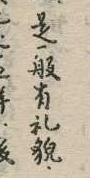 是一般有礼貌、